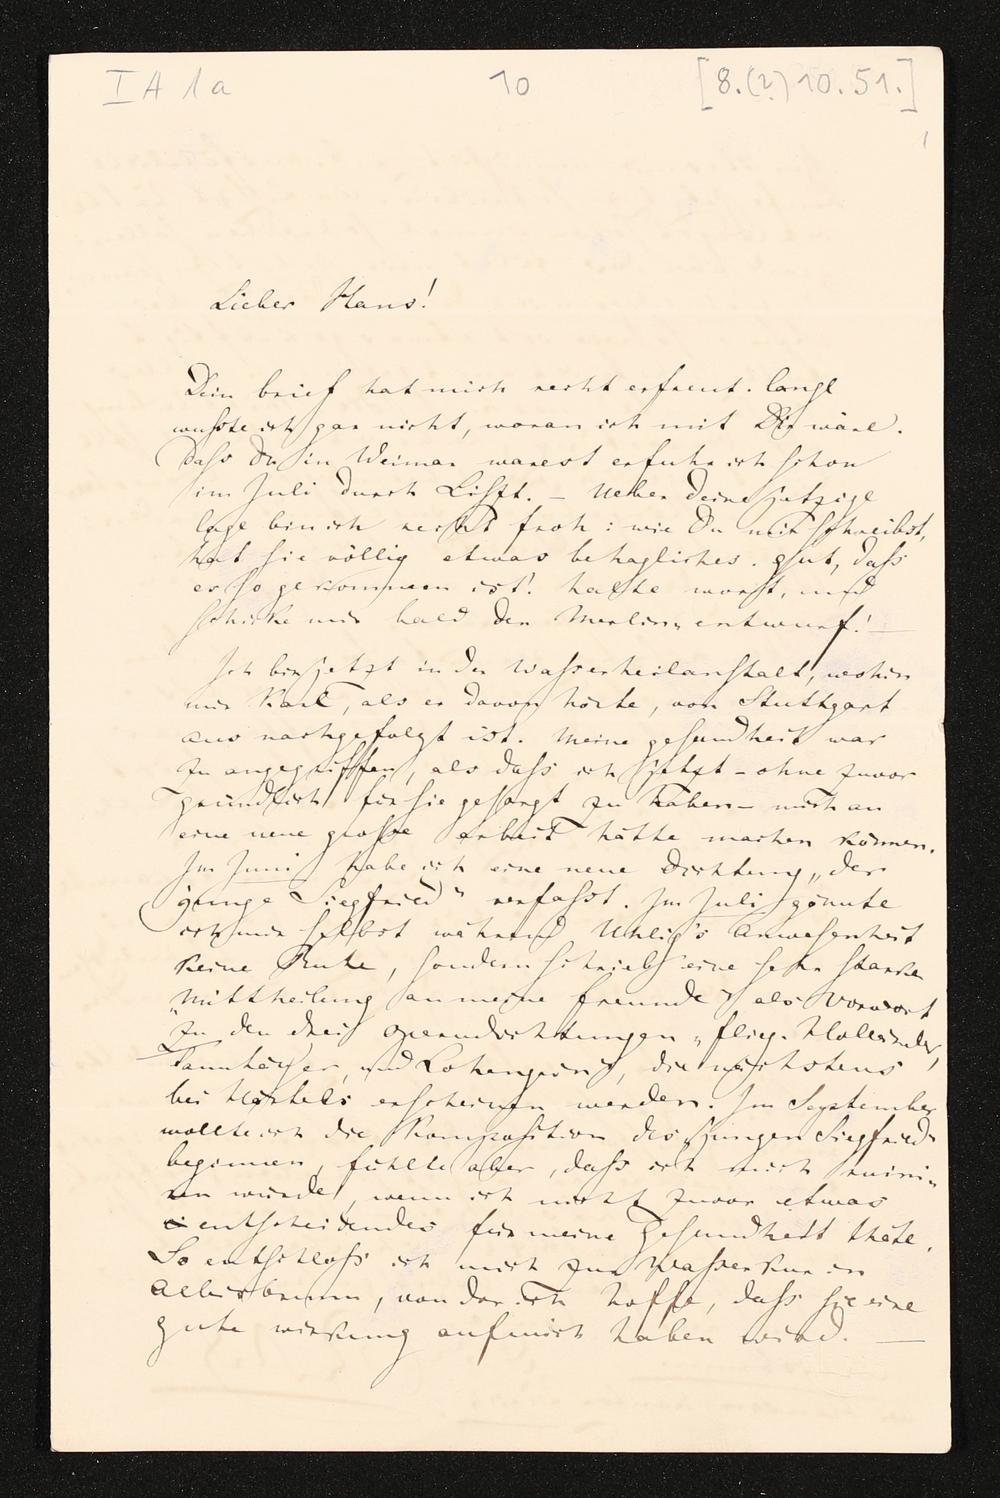 I A 1a 10 [8.(?) 10. 51.]
1
Lieber Hans!
Dein brief hat mich recht erfreut. lange
wußte ich gar nicht, woran ich mit Dir wäre.
Daß Du in Weimar warest erfuhr ich schon
im Juli durch Liszt. – Ueber deine jetzige
lage bin ich recht froh: wie Du mir schreibst,
hat sie völlig etwas behagliches. gut, daß
es so gekommen ist! halte wort, und
schicke mir bald den Merlin-entwurf! –
Ich bin jetzt in der Wasserheilanstalt, wohin
mir Karl, als er davon hörte, von Stuttgart
aus nachgefolgt ist. Meine gesundheit war
zu angegriffen, als daß ich jetzt – ohne zuvor
gründlich für sie gesorgt zu haben – mich an
eine neue große arbeit hätte machen können.
Im Juni habe ich eine neue Dichtung „der
junge Siegfried“ verfasst. Im Juli gönnte
ich mir selbst während Uhlig's Anwesenheit
keine Ruhe, sondern schrieb eine sehr starke
„Mittheilung an meine freunde“ als Vorwort
zu den drei operndichtungen „flieg. Holländer,
Tannhäuser, und Lohengrin“, die nächstens
bei Härtels erscheinen werden. Im September
wollte ich die Komposition des „jungen Siegfried“
beginnen, fühlte aber, daß ich mich ruini-
ren würde, wenn ich nicht zuvor etwas
entscheidendes für meine Gesundheit thäte.
So entschloß ich mich zur Wasserkur in
Albisbrunn, von der ich hoffe, daß sie eine
gute wirkung auf mich haben wird. —